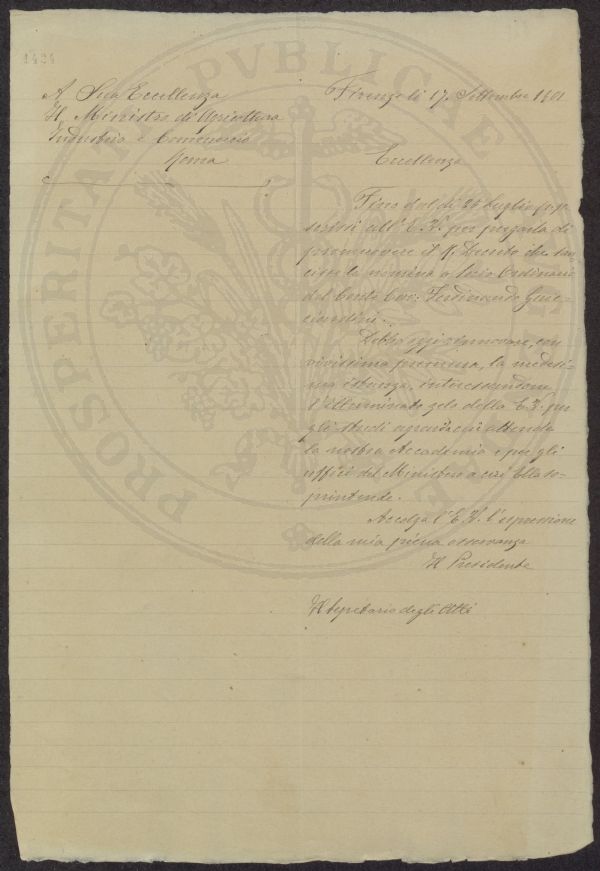 1424
A Sua Eccellenza
Il Ministro di Agricoltura
Industria e Commercio
Roma
Firenze li 17. Settembre 1901
Eccellenza
Fino dal dì 26 Luglio
scrissi all'E. V. per pregarla di
promuovere il R. Decreto che san-
cisce la nomina a Socio Ordinario
del Conte Cav. Ferdinando Guic-
ciardini.
Debbo oggi rinnovare, con
vivissima premura, la medesi-
ma istanza, interessandone
l'illuminato zelo della E. V. per
gli studi agrari cui attende
la nostra Accademia e per gli
uffici del Ministero a cui Ella so-
printende.
Accolga l'E. V. l'espressione
della mia piena osservanza
Il Presidente
Il Segretario degli Atti
PROSPERITATI PVBLICAE